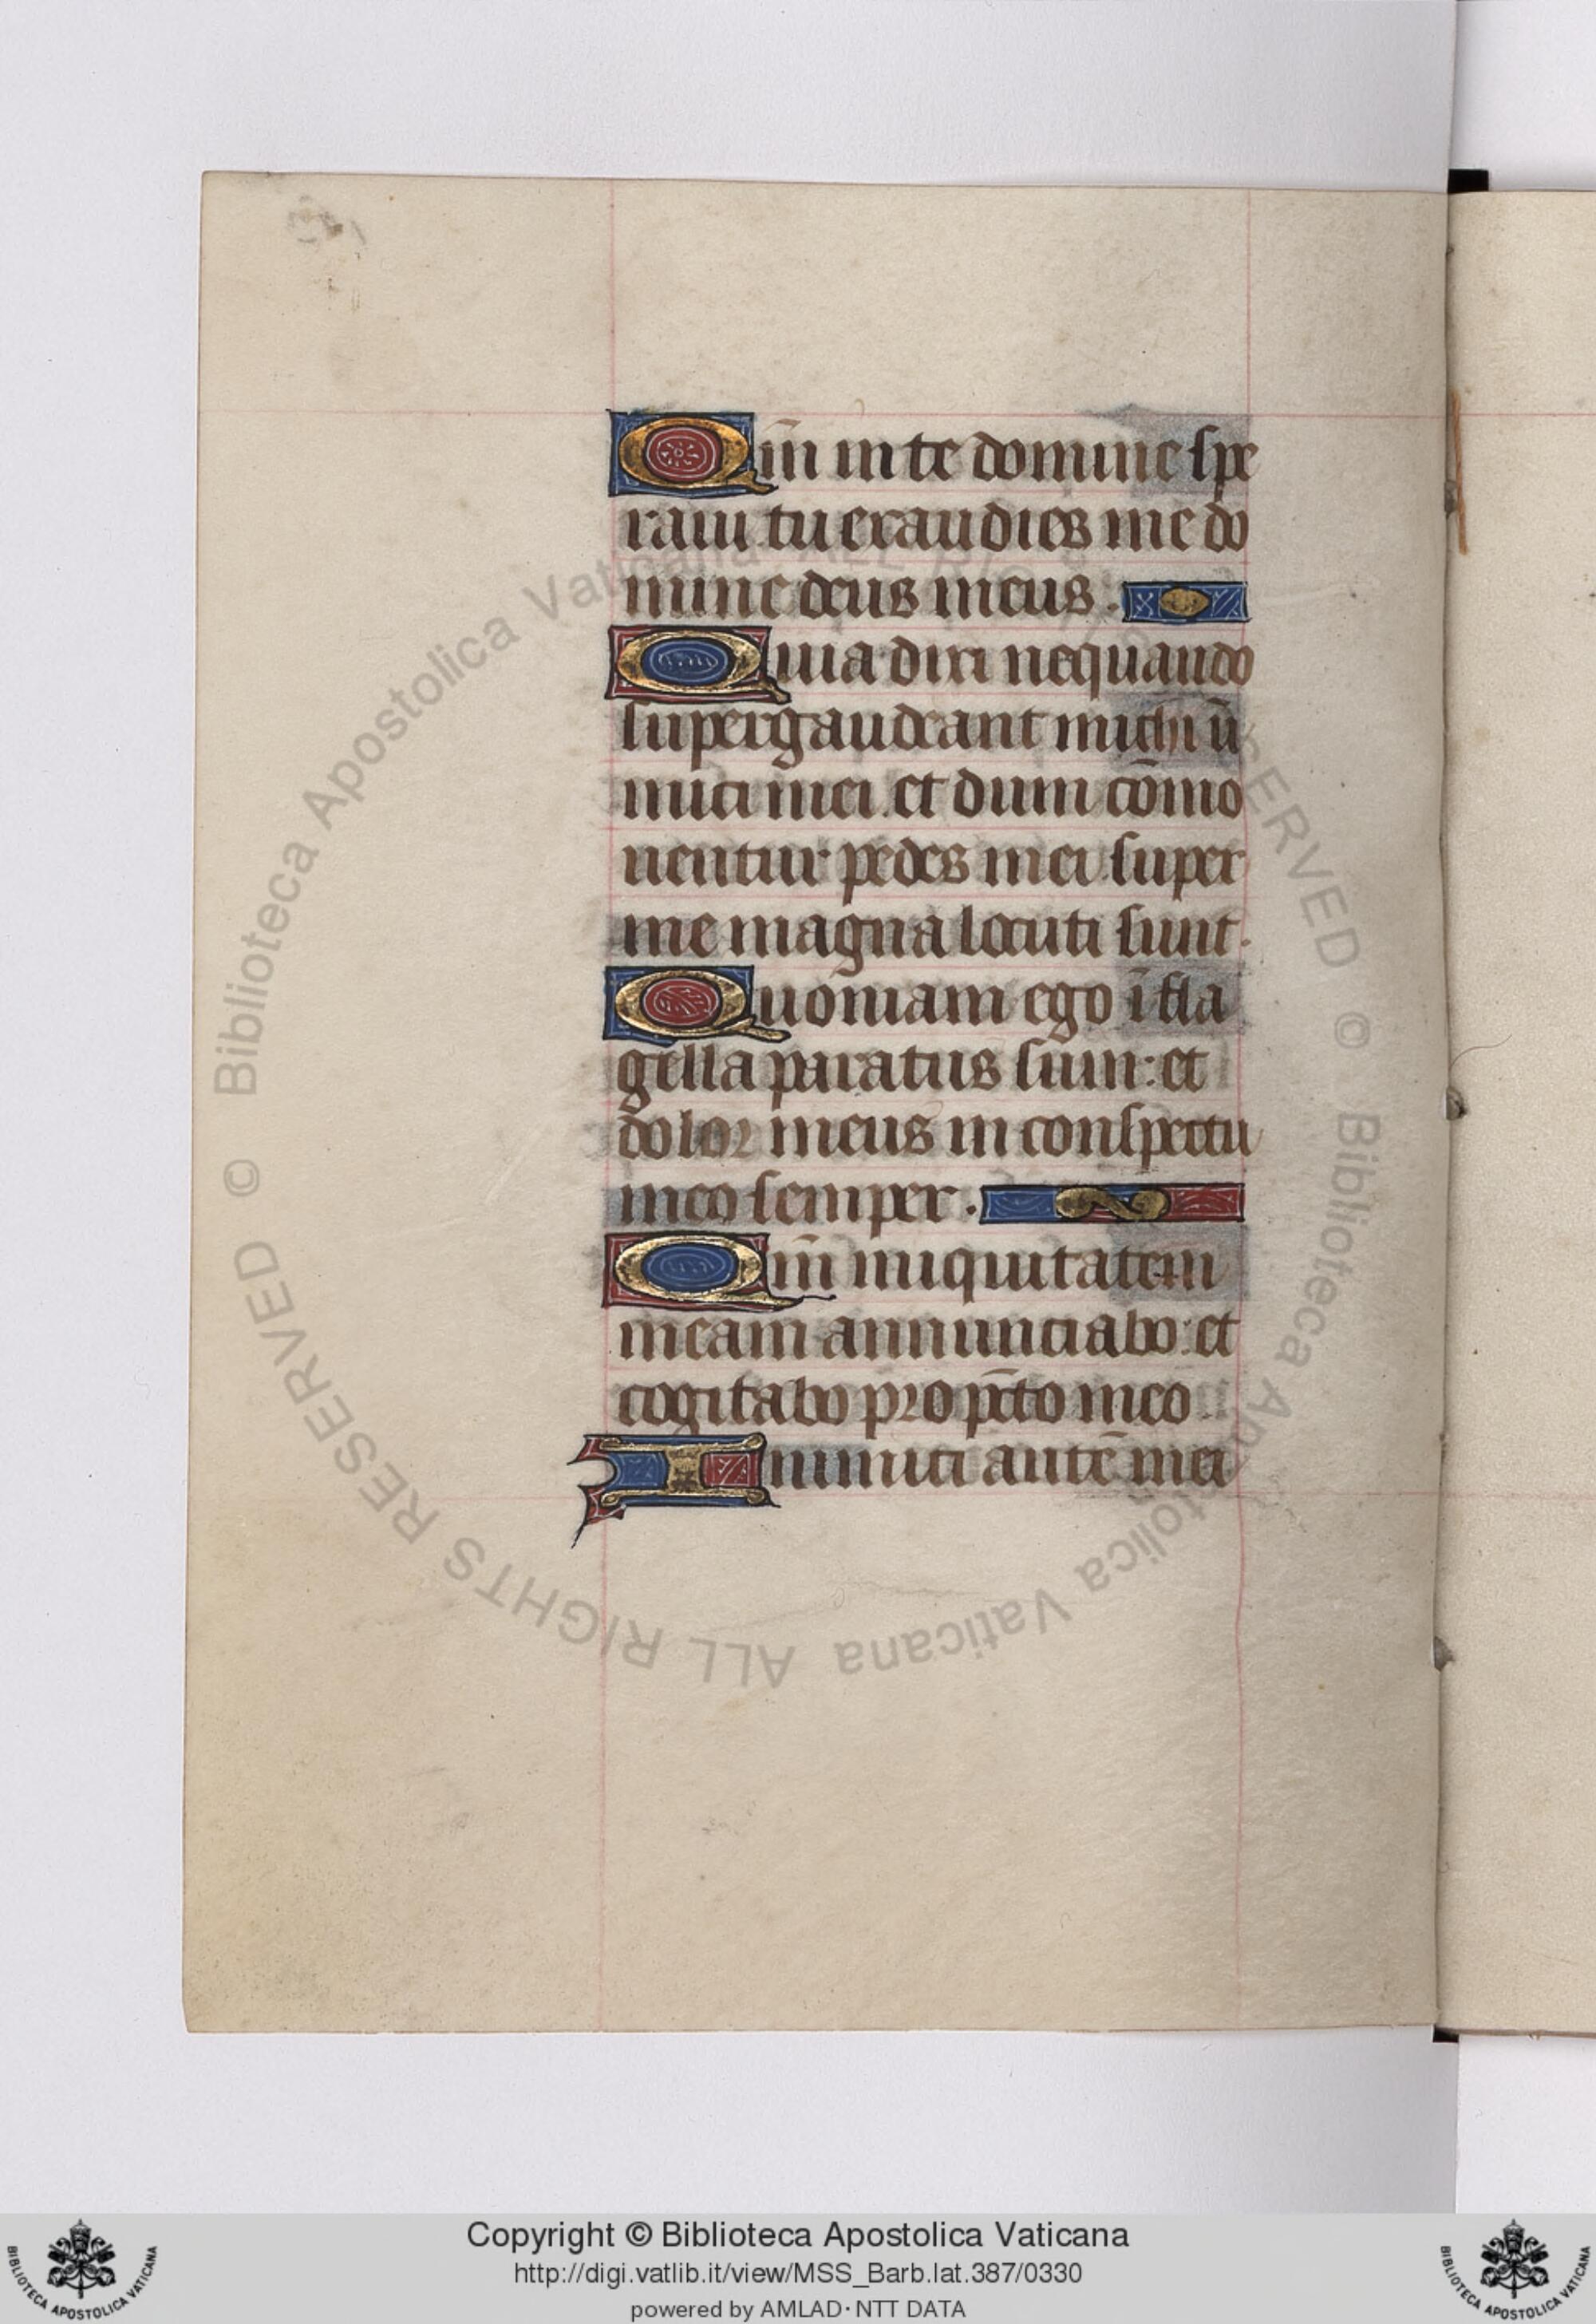 Qm̄ in te domine spe
raui tu exaudies me do
mine deus meus.
Quia dixi nequando
supergaudeant michi in̄
mici mei. et dum cōmo
uentur pedes mei super
me magna locuti sunt.
Quoniam ego ī fla
gella paratus sum: et
dolor meus in conspectu
meo semper.
Qm̄ iniquitatem
meam annunciabo: et
cogitabo pro pc̄to meo
Inimici autē mei
© Biblioteca Apostolica Vaticana ALL RIGHTS RESERVED © Biblioteca Apostolica Vaticana ALL RIGHTS RESERVED
Copyright © Biblioteca Apostolica Vaticana
http://digi.vatlib.it/view/MSS_Barb.lat.387/0330
powered by AMLAD·NTT DATA
BIBLIOTECA APOSTOLICA VATICANA
BIBLIOTECA APOSTOLICA VATICANA